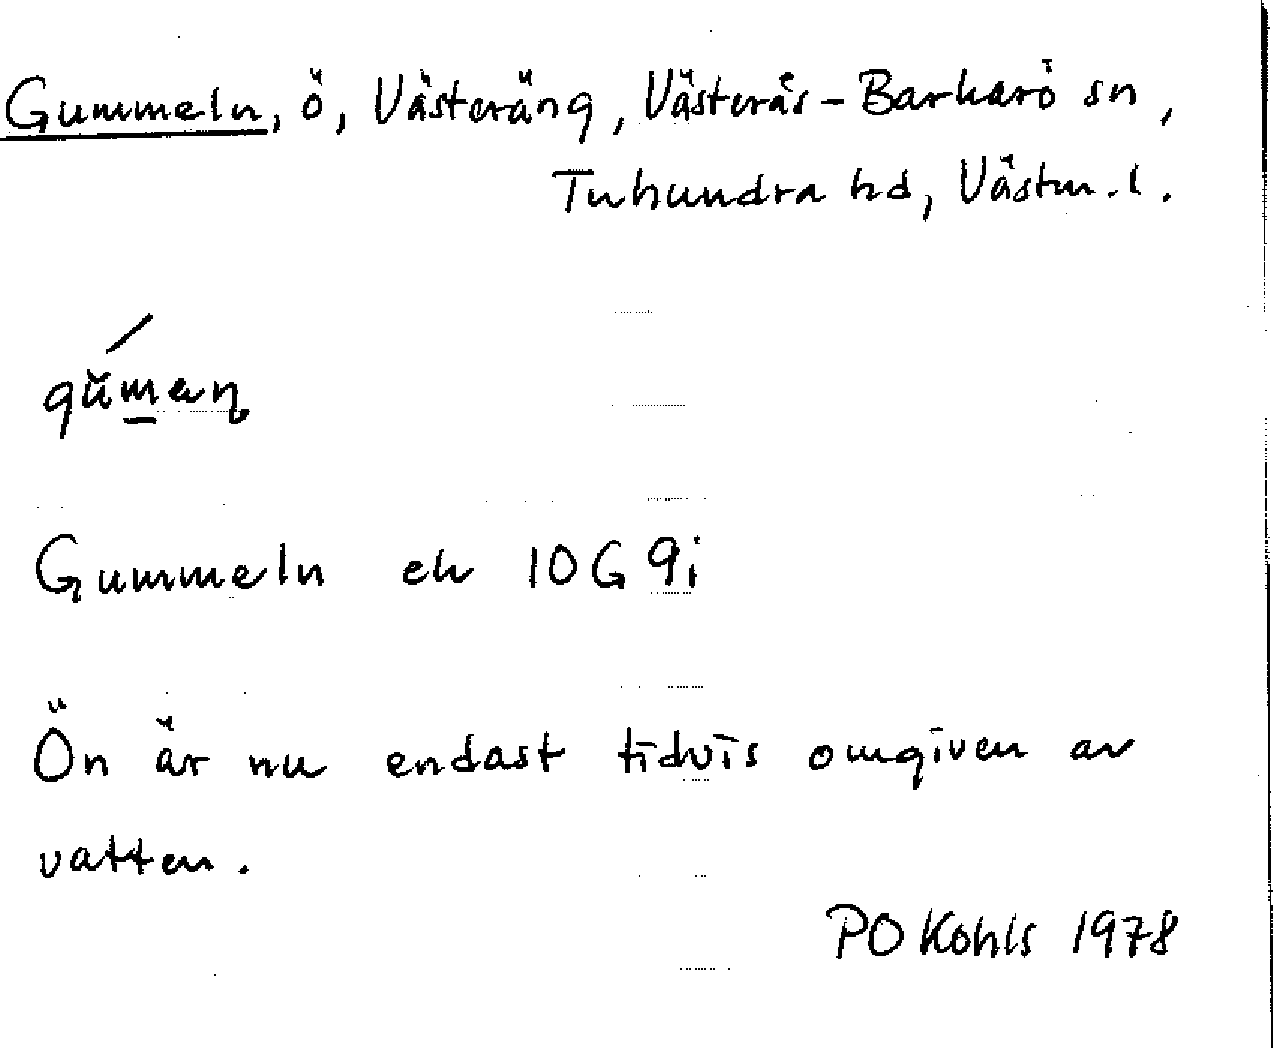 Gummeln, ö, Västeräng, Västerås-Barkarö sn,
Tuhundra hd, Västm.l.
Gummeln ek 10G 9i
Ön är nu endast tidvis omgiven av
vatten.
PO Kohls 1978